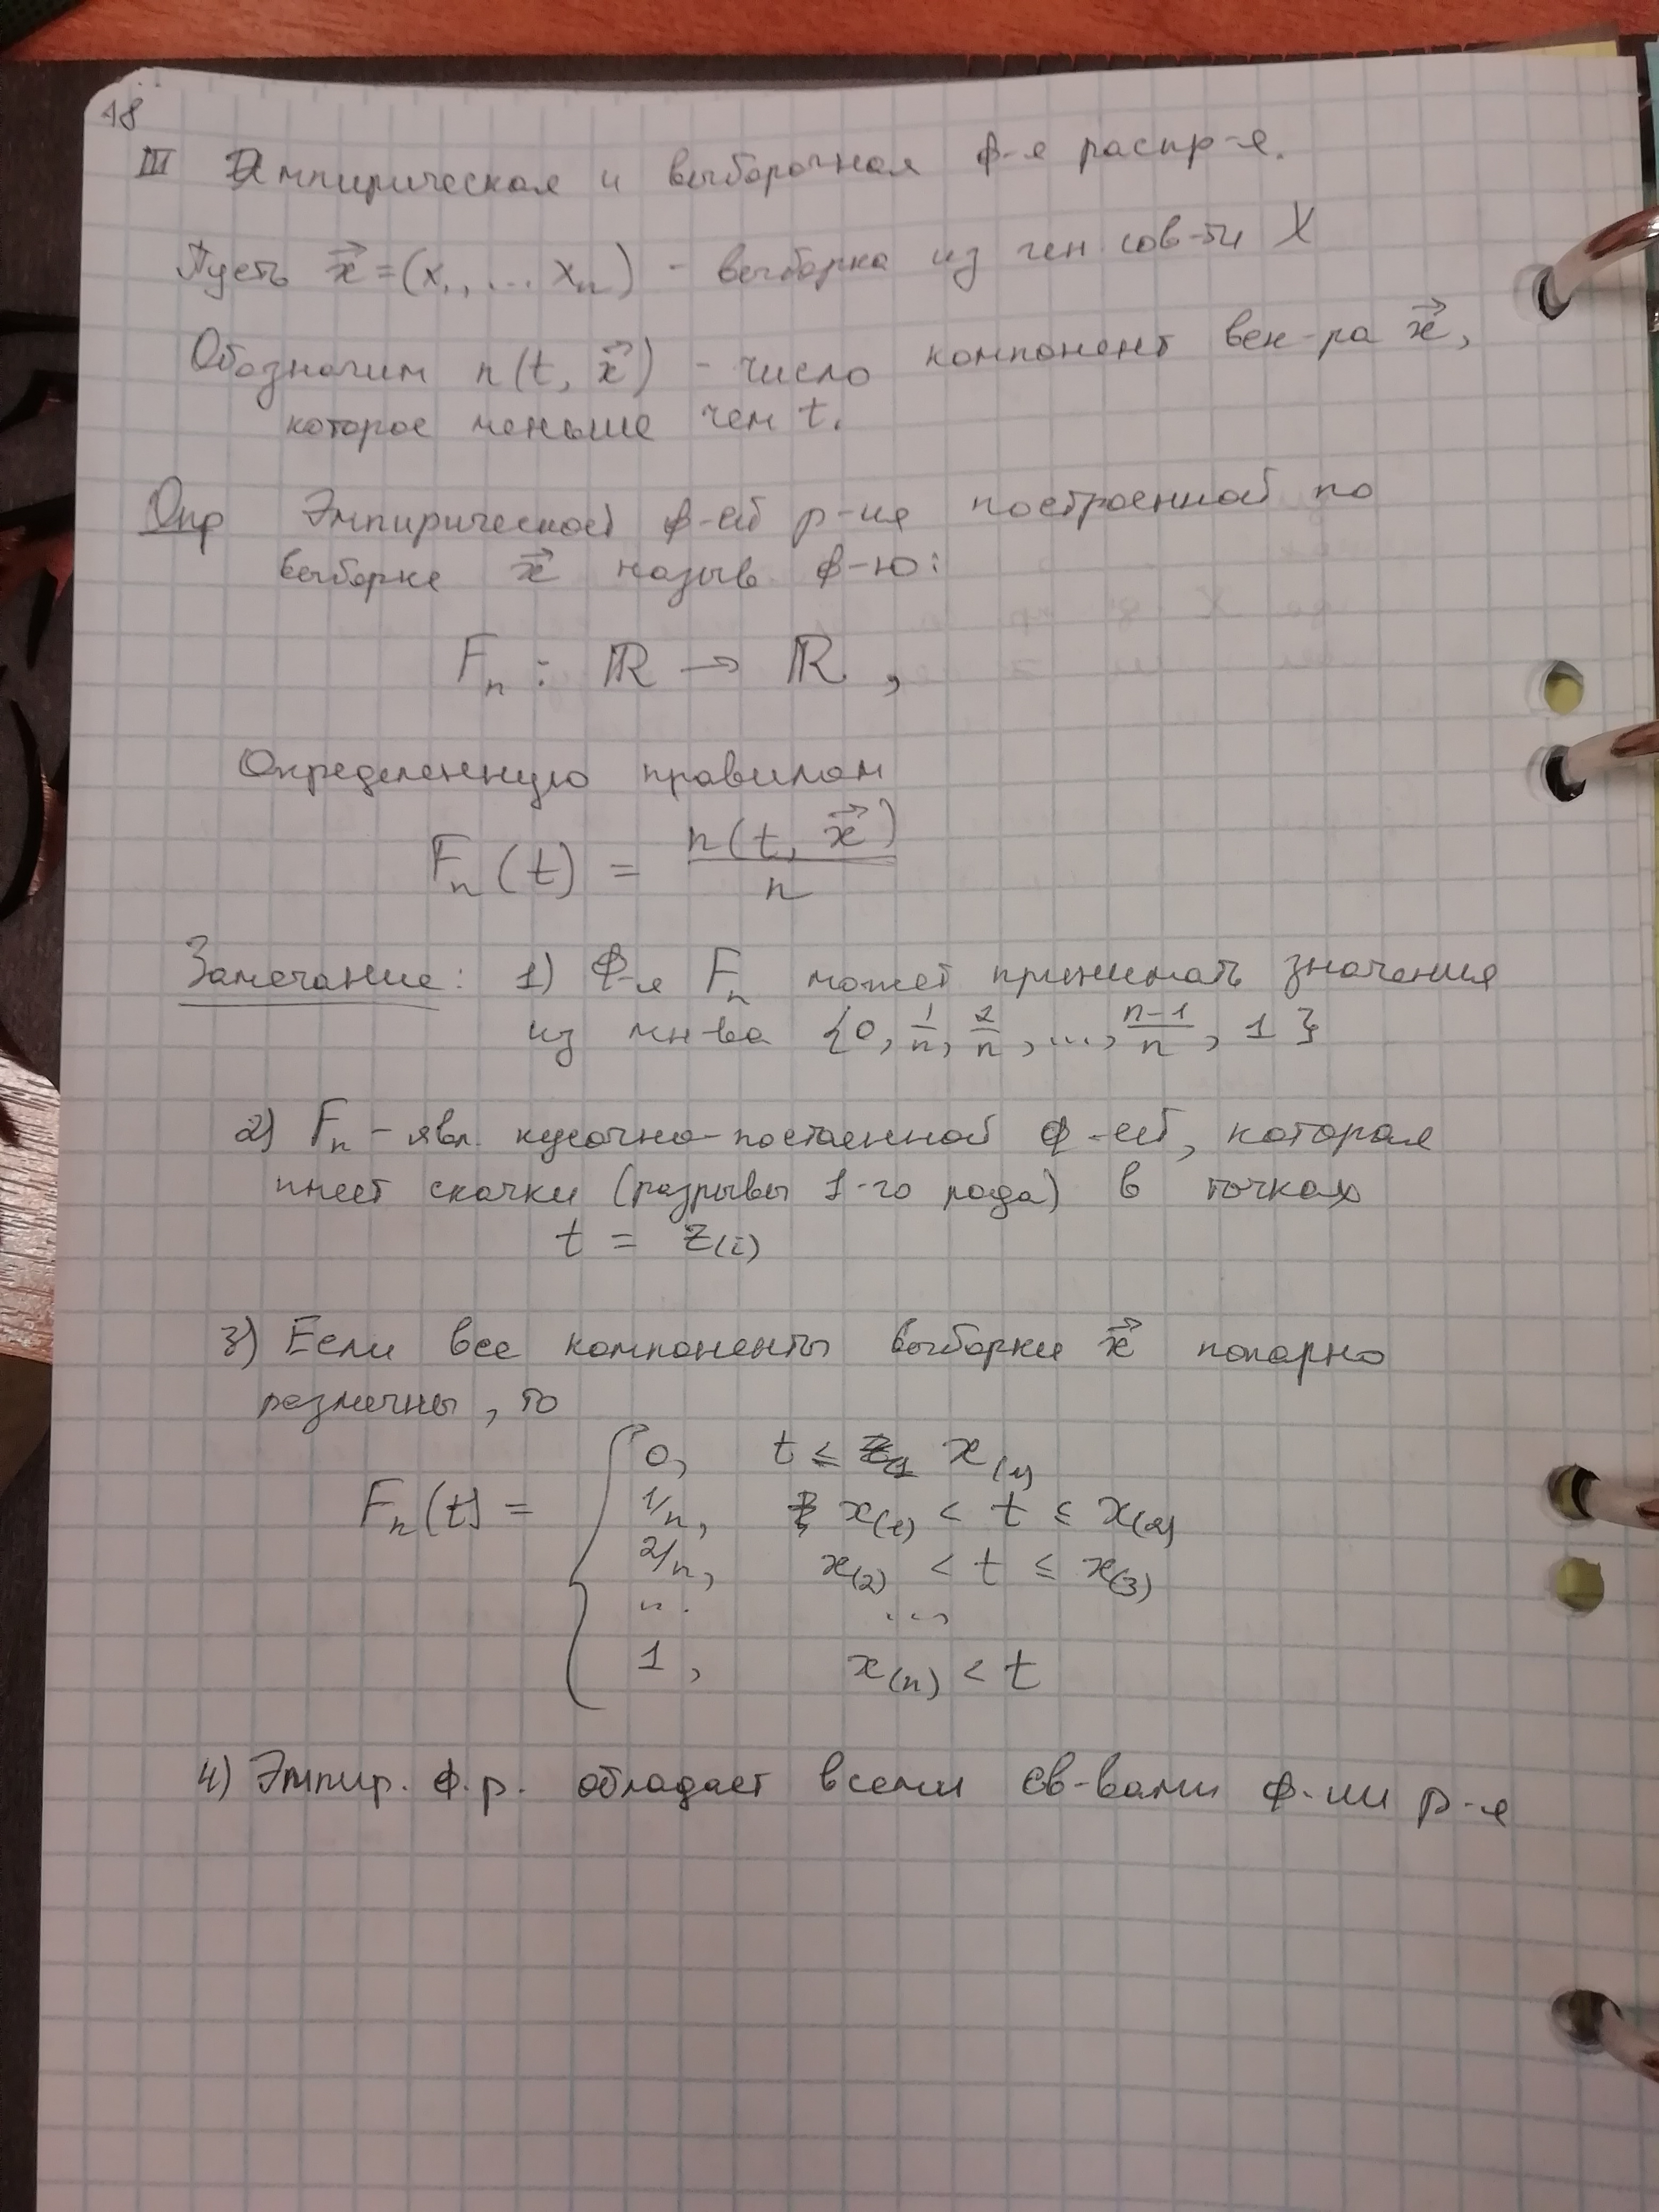 18
III Эмпирическая и выборочная ф-я распр-я.
Пусть x⃗ = (x₁, ... xₙ) - выборка из ген. сов-ти X
Обозначим n(t, x⃗) - число компонент век-ра x⃗,
которое меньше чем t.
Опр Эмпирической ф-ей р-ия построенной по
выборке x⃗ назыв ф-ю:
Fₙ : ℝ → ℝ ,
Определенную правилом
Fₙ(t) = n(t, x⃗) / n
Замечание: 1) Ф-я Fₙ может принимать значения
из мн-ва {0, 1/n, 2/n, ..., (n-1)/n, 1}
2) Fₙ - явл. кусочно-постоенной ф-ей, которая
имеет скачки (разрывы 1-го рода) в точках
t = z(i)
3) Если все компоненты выборки x⃗ попарно
различны, то
Fₙ(t) = { 0, t ≤ x(1)
1/n, x(1) < t ≤ x(2)
2/n, x(2) < t ≤ x(3)
... ...
1, x(n) < t
4) Эмпир. ф.р. обладает всеми св-вами ф-ии р-я